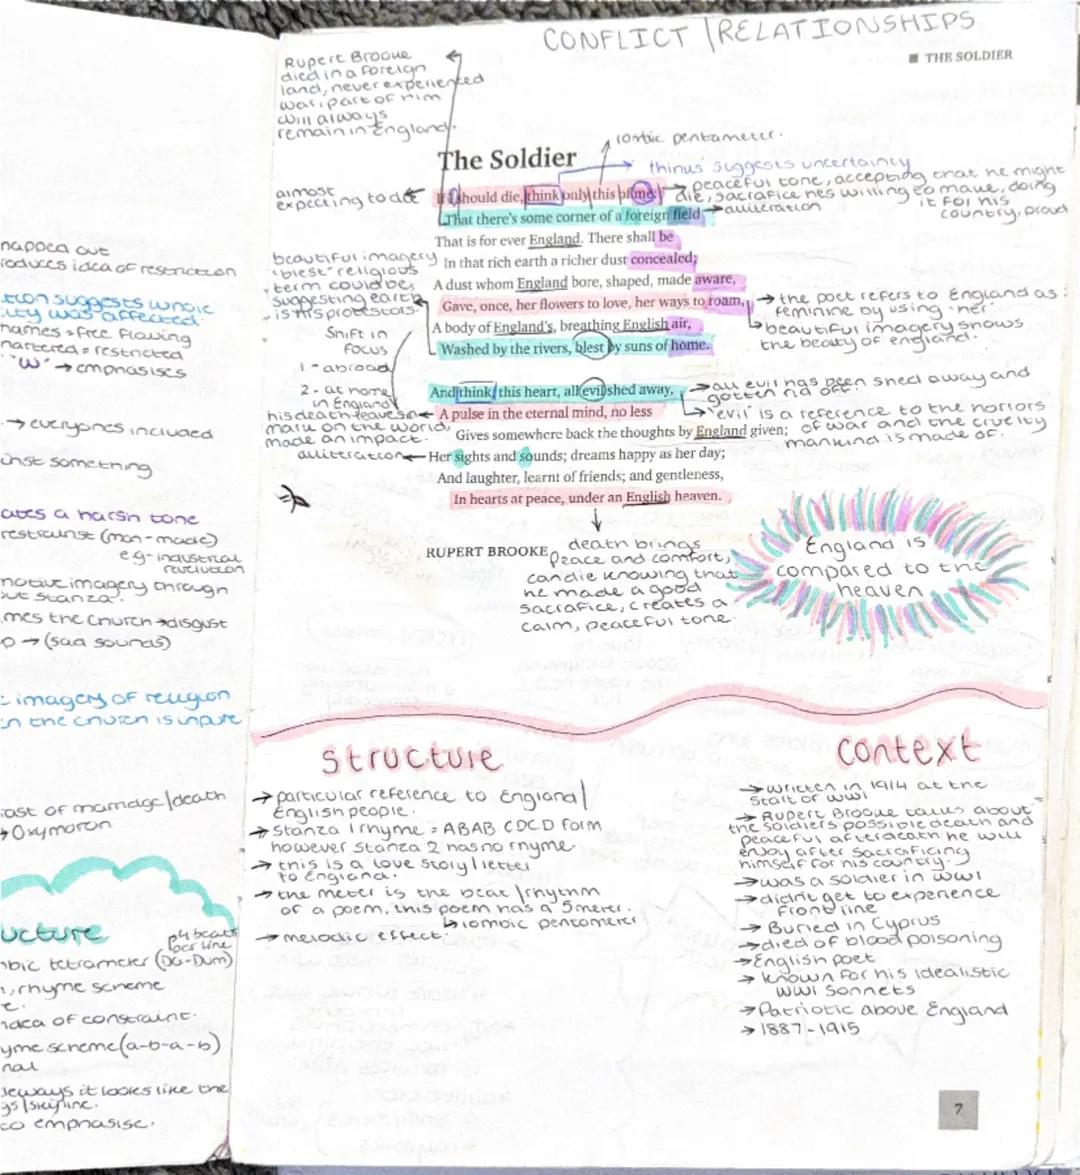 CONFLICT | RELATIONSHIPS
■ THE SOLDIER
Rupert Brooke
died in a foreign
land, never experienced
war, part of him
will always
remain in England.
iombic pentameter.
The Soldier
thinks suggests uncertainty
almost
expecting to die
peaceful tone, accepting that he might
die, sacrafice hes willing to make, doing
it for his
country, proud
alliteration
If I should die, think only this of me:
That there's some corner of a foreign field
That is for ever England. There shall be
In that rich earth a richer dust concealed;
A dust whom England bore, shaped, made aware,
Gave, once, her flowers to love, her ways to roam,
A body of England's, breathing English air,
Washed by the rivers, blest by suns of home.
beautiful imagery
'blest' religious
term could be
suggesting earth
is his protestors.
Shift in
focus
1 - abroad
2 - at home
in England
→ the poet refers to England as
feminine by using 'her'
→ beautiful imagery shows
the beauty of england.
And think, this heart, all evil shed away,
A pulse in the eternal mind, no less
Gives somewhere back the thoughts by England given;
Her sights and sounds; dreams happy as her day;
And laughter, learnt of friends; and gentleness,
In hearts at peace, under an English heaven.
his death leaves a
mark on the world,
made an impact.
alliteration
→ all evil has been shed away and
gotten rid of.
→ 'evil' is a reference to the horrors
of war and the cruelty
mankind is made of.
RUPERT BROOKE
death brings
peace and comfort,
can die knowing that
he made a good
sacrafice, creates a
calm, peaceful tone.
England is
compared to the
heaven
Structure
→ particular reference to England/
English people.
→ Stanza 1 rhyme = ABAB CDCD form
however stanza 2 has no rhyme.
→ this is a love story/letter
to England.
→ the meter is the beat/rhythm
of a poem. this poem has a 5 meter.
↳ iombic pentameter
→ melodic effect
Context
→ written in 1914 at the
start of WW1
→ Rupert Brooke talks about
the soldiers possible death and
peaceful afterdeath he will
enjoy after sacraficing
himself for his country.
→ was a soldier in WW1
→ didnt get to experience
front line
→ Buried in Cyprus
→ died of blood poisoning
→ English poet
→ known for his idealistic
WW1 Sonnets
→ Patriotic above England
→ 1887-1915
7
out
idea of restriction
suggests whole
was affected.
names = free flowing
= restricted
"W" → emphasises
→ everyones included
something
a harsh tone
(man-made)
e.g - industrial
revolution
imagery through
stanza.
the church → disgust
→ (sad sounds)
imagery of religion
the church is impure
of marriage/death
→ Oxymoron
4 beats
per line
tetrameter (Da-Dum)
rhyme scheme
of constraint.
scheme (a-b-a-b)
it looks like the
skyline.
to emphasise.